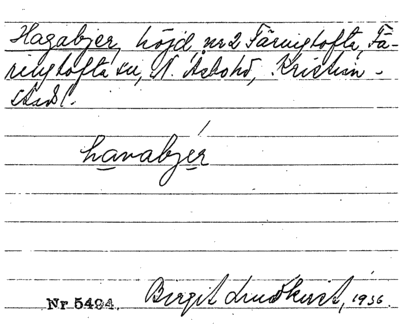 Hagabjer, höjd nr 2 Färingtofta, Fä-
ringtofta sn, N. Åsbohd, Kristian-
stads l.
havabjér
Nr 5494. Birgit Lundkvist, 1936